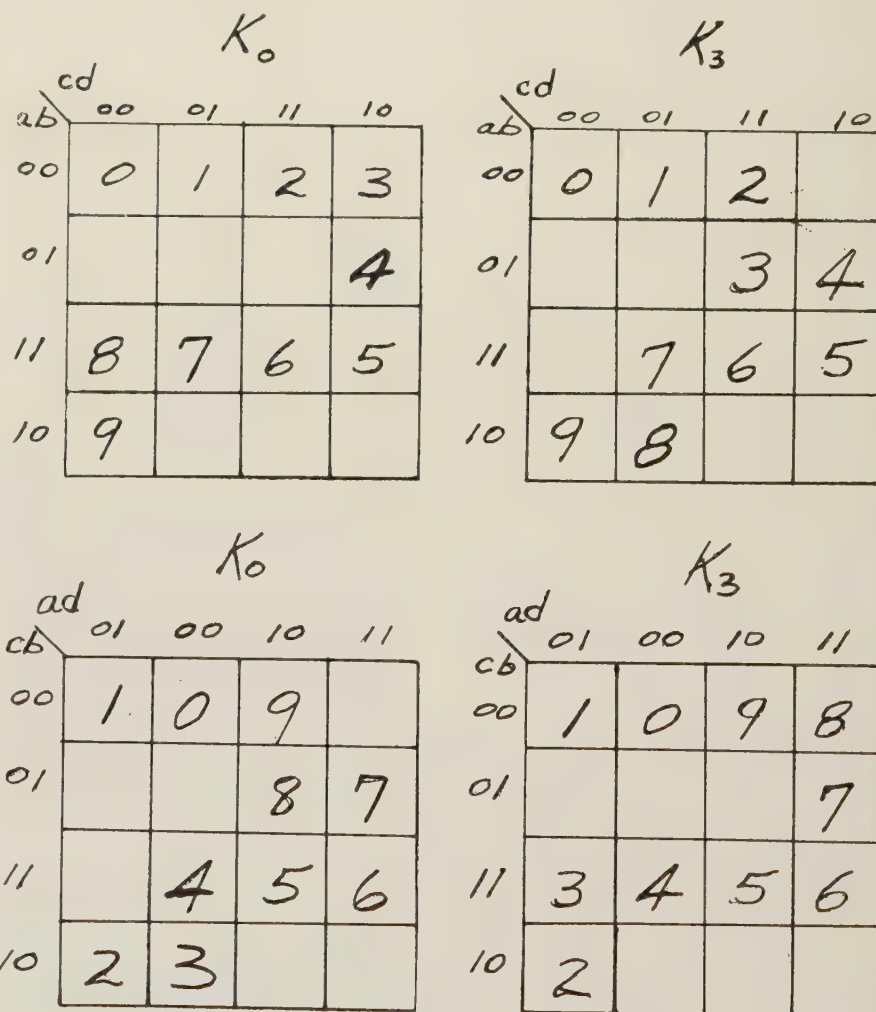 K₀
cd
ab 00 01 11 10
00 0 1 2 3
01 4
11 8 7 6 5
10 9
K₃
cd
ab 00 01 11 10
00 0 1 2
01 3 4
11 7 6 5
10 9 8
K₀
ad
cb 01 00 10 11
00 1 0 9
01 8 7
11 4 5 6
10 2 3
K₃
ad
cb 01 00 10 11
00 1 0 9 8
01 7
11 3 4 5 6
10 2